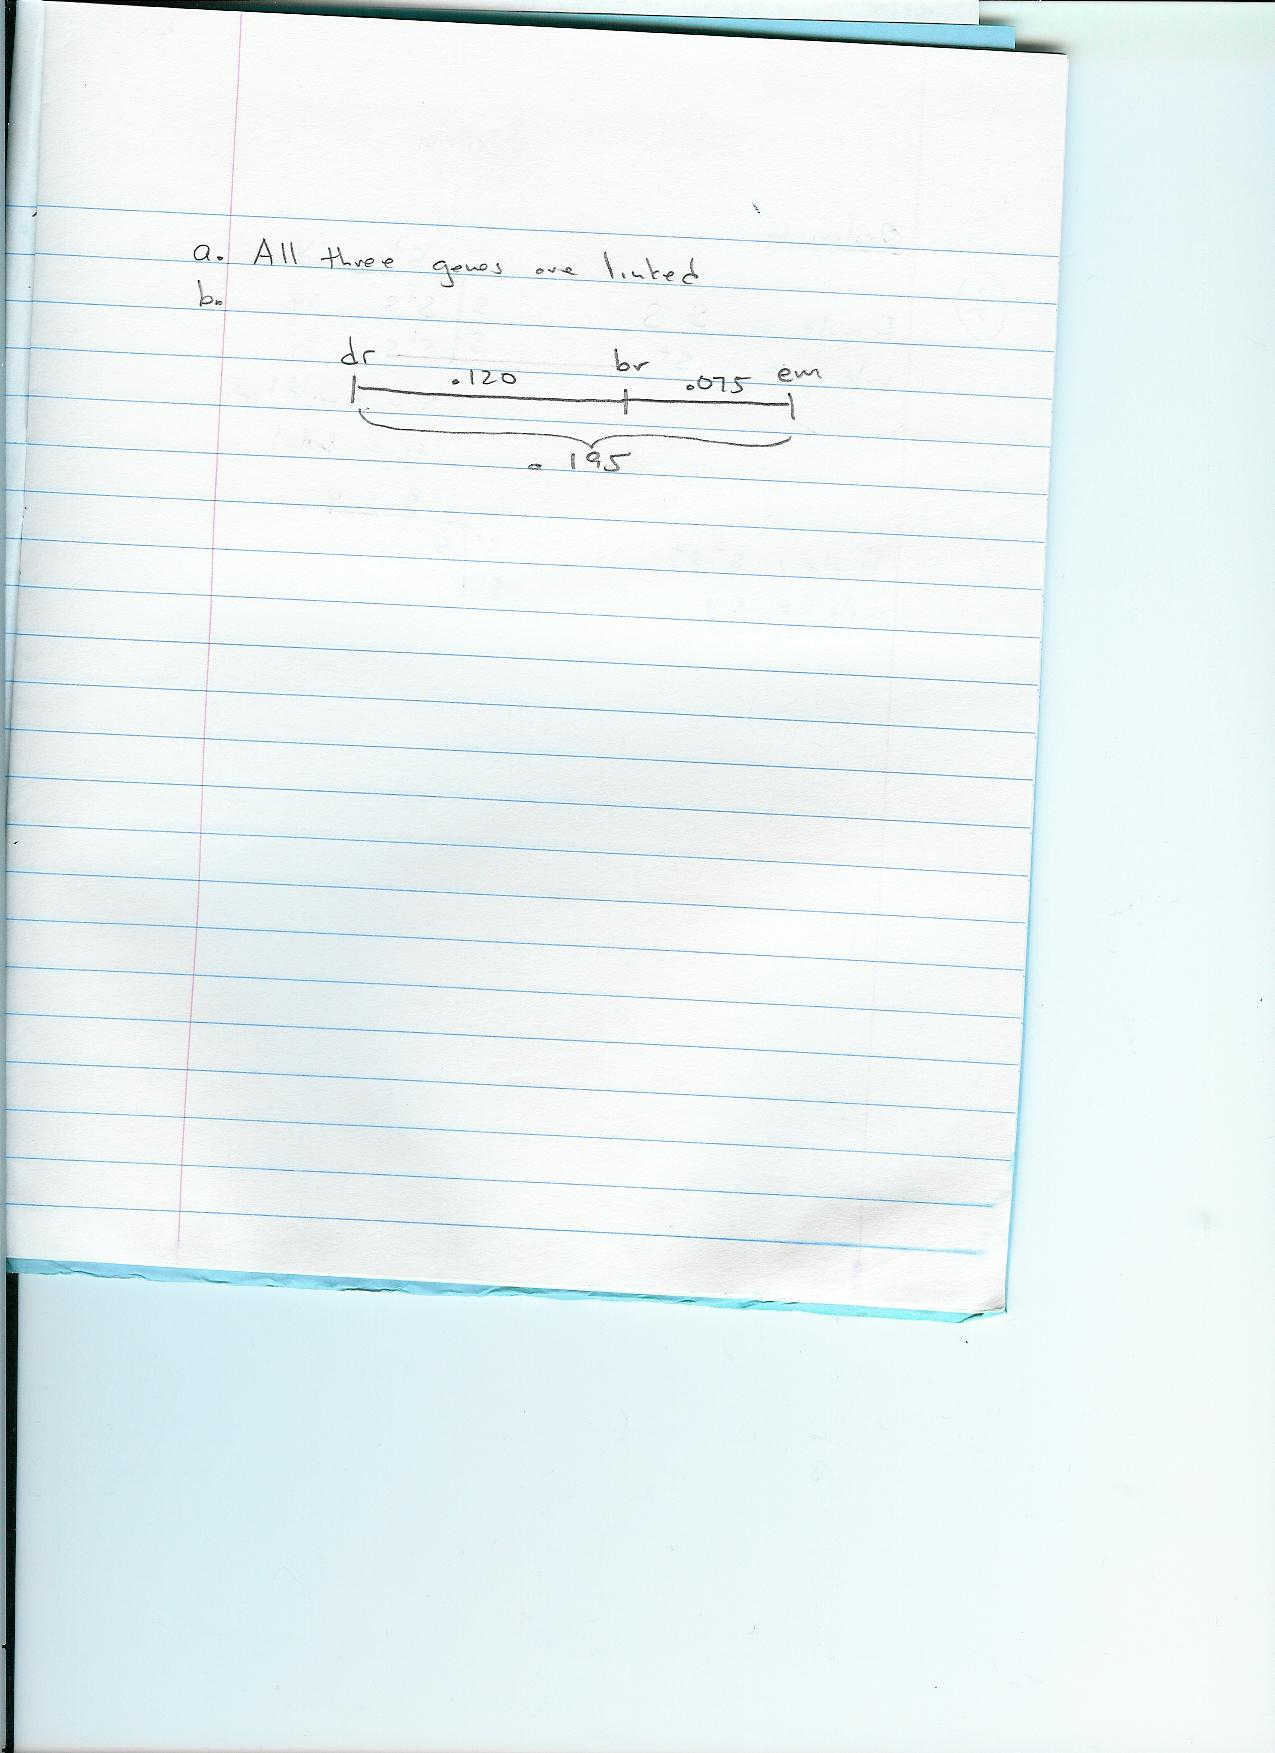 a. All three genes are linked
b.
dr br em
.120 .075
.195